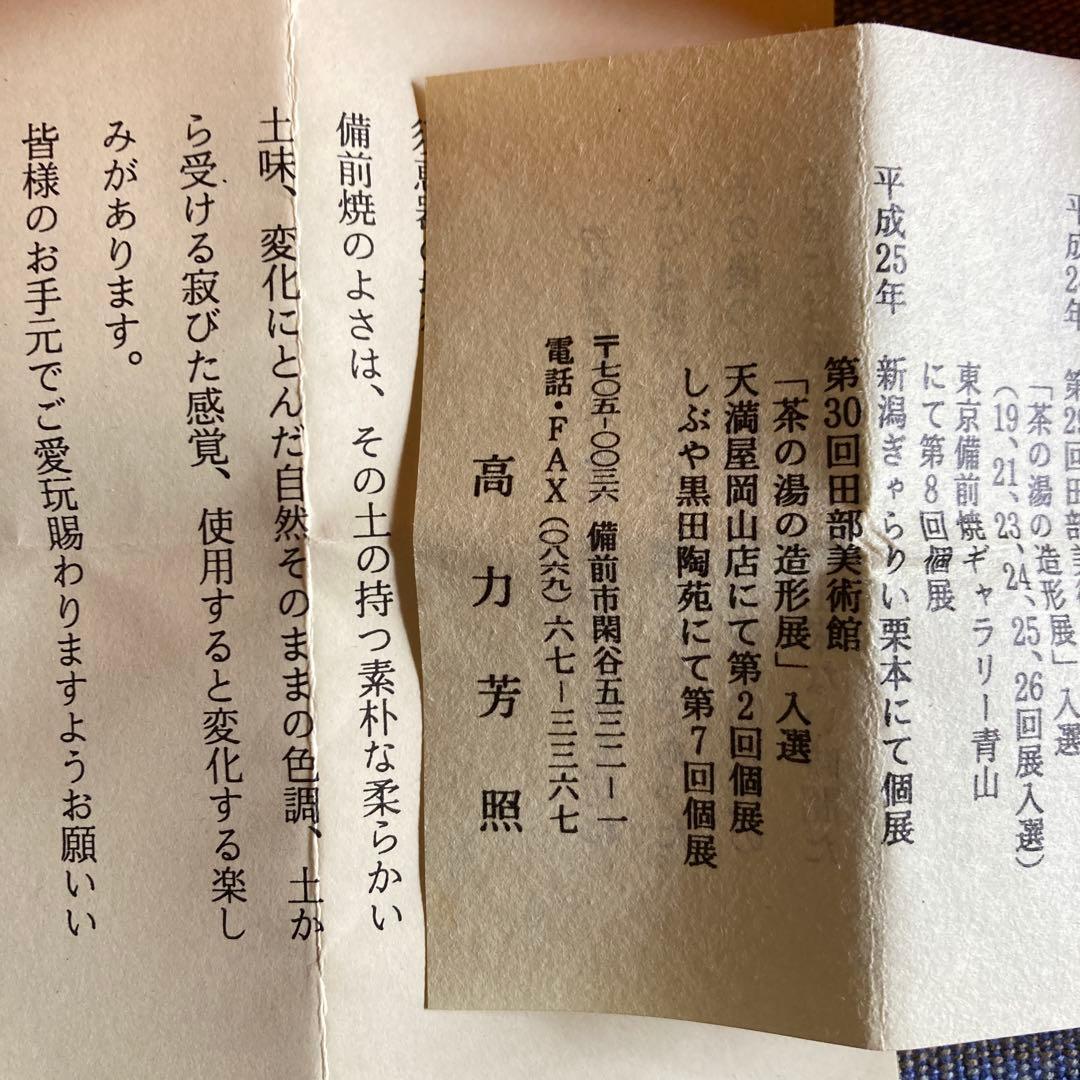 平成25年 新潟ぎゃらりい栗本にて個展
第30回田部美術館
「茶の湯の造形展」入選
天満屋岡山店にて第2回個展
しぶや黒田陶苑にて第7回個展
〒七〇五-〇〇三六 備前市閑谷五三二-一
電話・FAX(〇八六九)六七-三三六七
高力芳照
第29回田部美
「茶の湯の造形展」入選
(19、21、23、24、25、26回展入選)
東京備前焼ギャラリー青山
にて第8回個展
備前焼のよさは、その土の持つ素朴な柔らかい
土味、変化にとんだ自然そのままの色調、土か
ら受ける寂びた感覚、使用すると変化する楽し
みがあります。
皆様のお手元でご愛玩賜わりますようお願いい